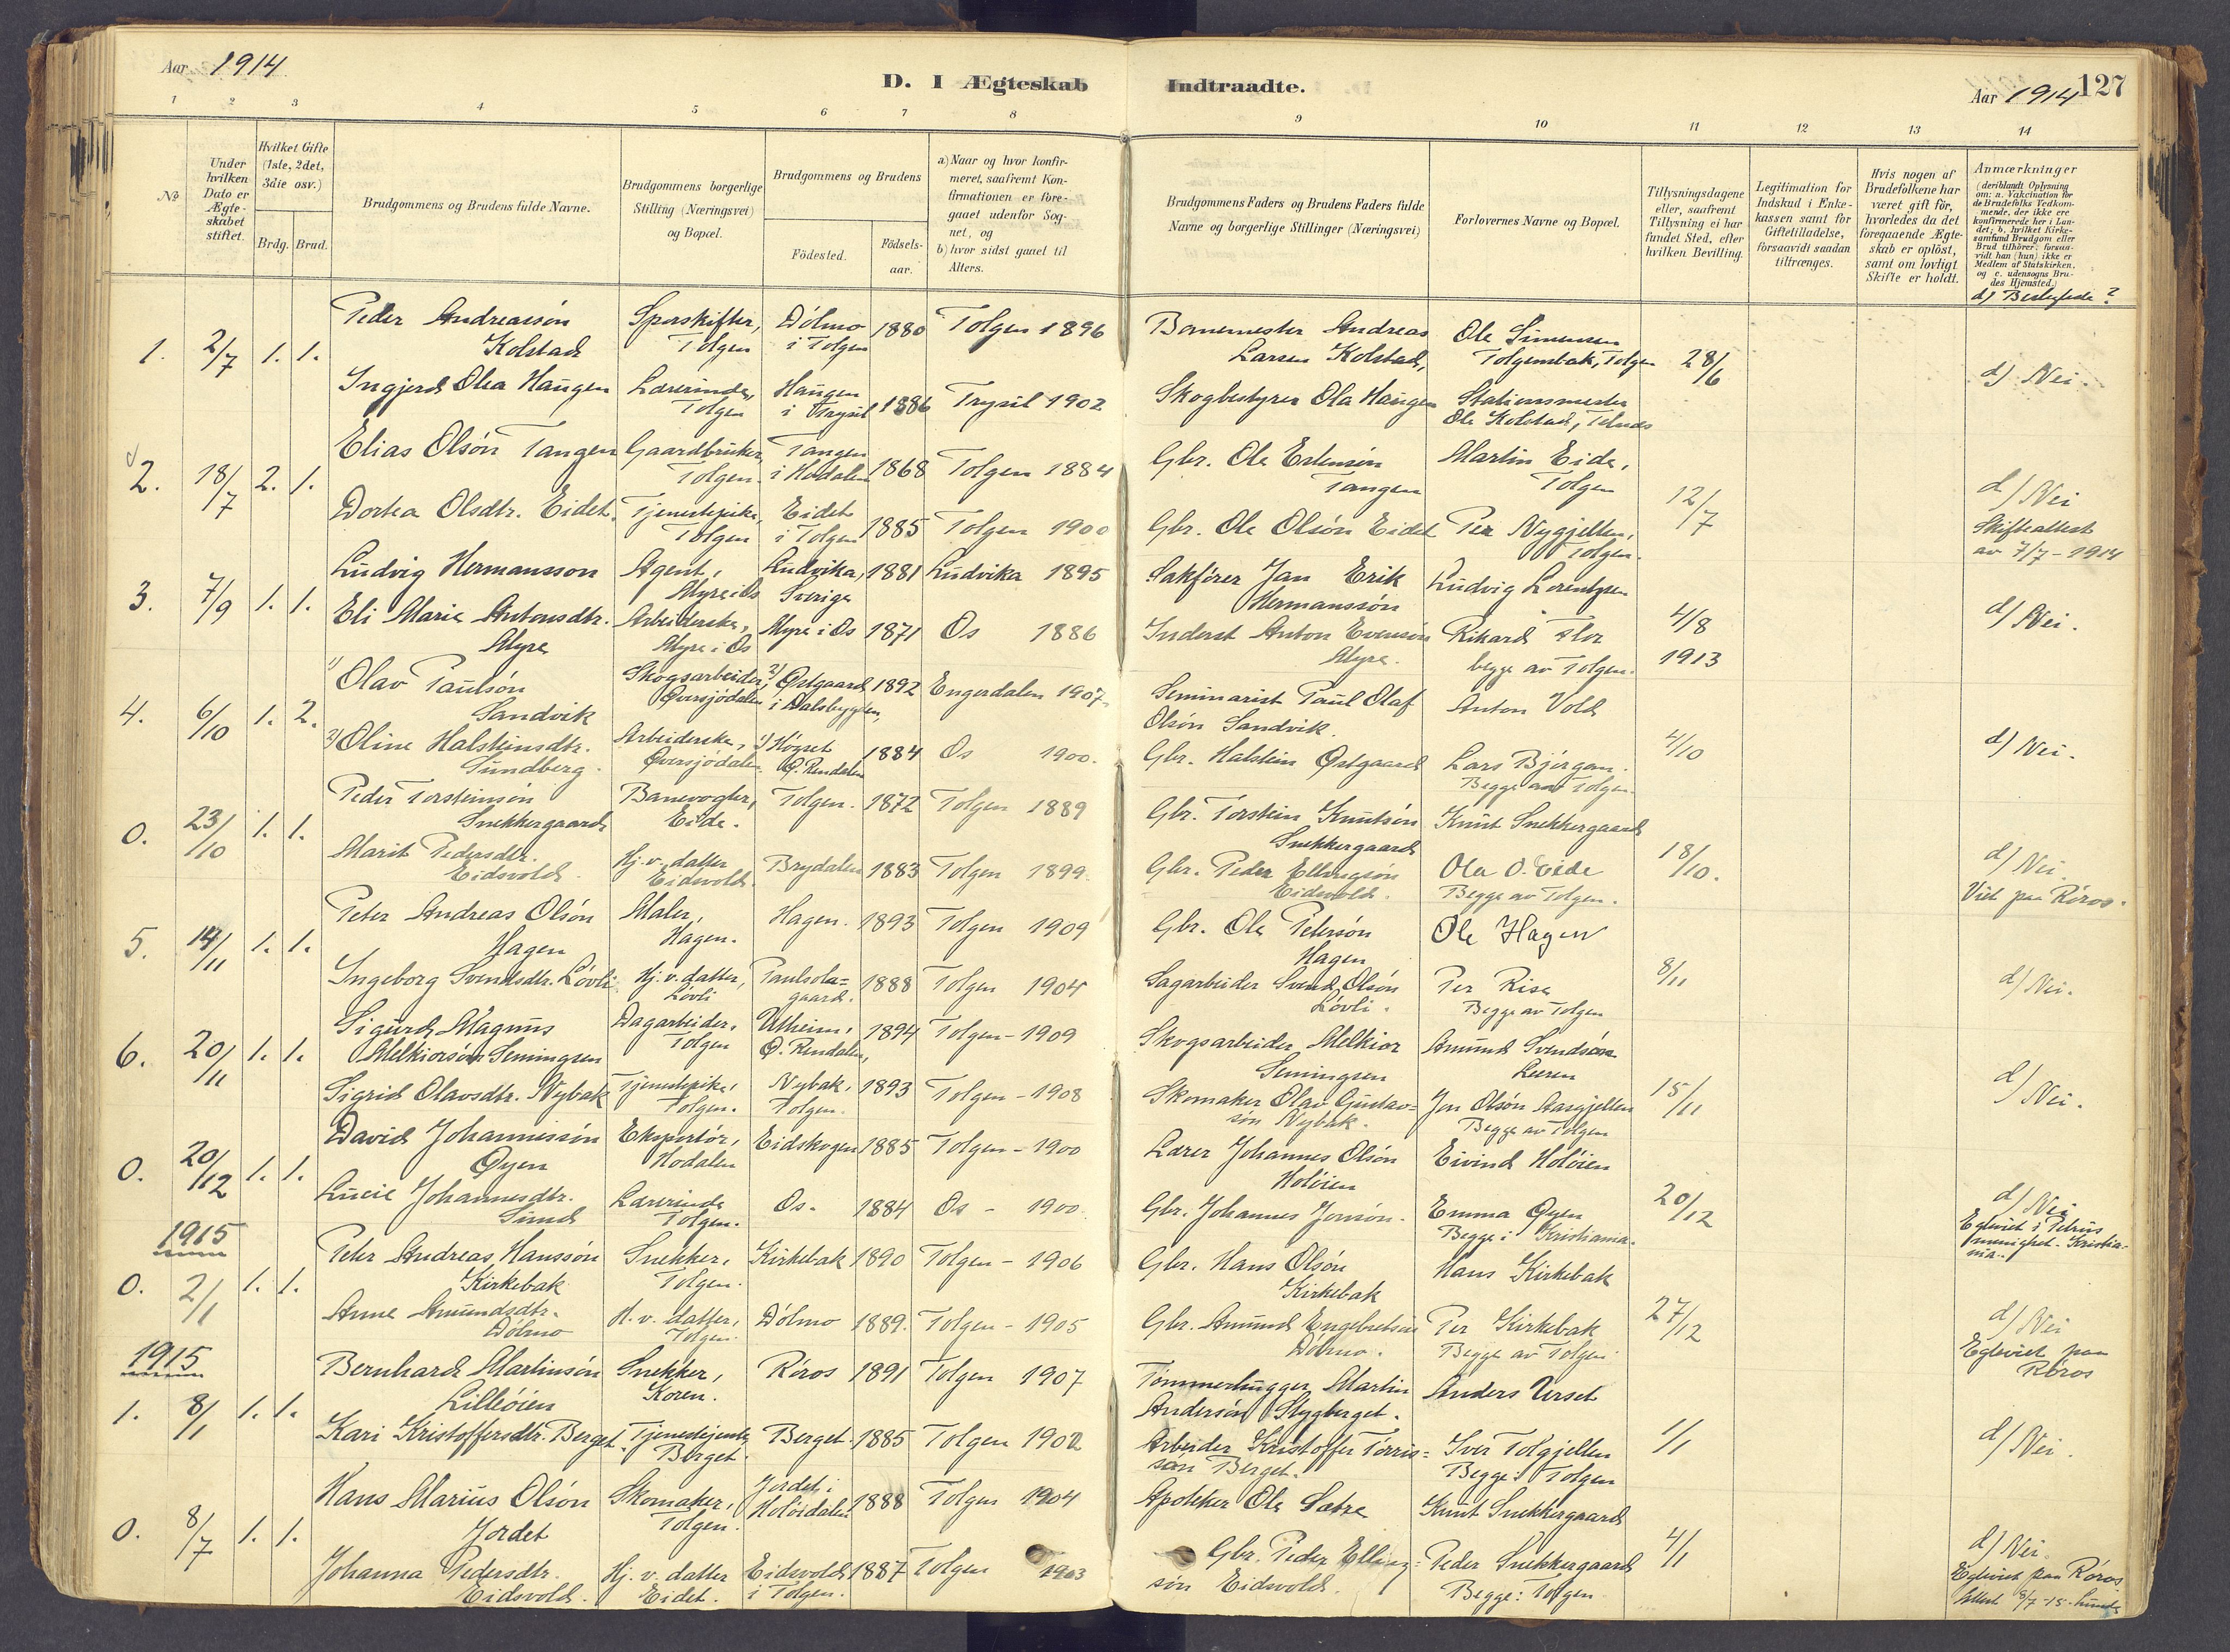 Aar 1914
D. I Ægteskab Indtraadte.
Aar 1914
127
1 2 3 4 5 6 7 8 9 10 11 12 13 14
No
Under hvilken Dato er Ægteskabet stiftet.
Hvilket Gifte (1ste, 2det, 3die osv.)
Brdg. Brud.
Brudgommens og Brudens fulde Navne.
Brudgommens borgerlige Stilling (Næringsvei) og Bopæl.
Brudgommens og Brudens
Fødested.
Fødselsaar.
a) Naar og hvor konfirmeret, saafremt Konfirmationen er foregaaet udenfor Sognet, og
b) hvor sidst gaaet til Alters.
Brudgommens Faders og Brudens Faders fulde Navne og borgerlige Stillinger (Næringsvei)
Forlovernes Navne og Bopæl.
Tillysningsdagene eller, saafremt Tillysning ei har fundet Sted, efter hvilken Bevilling.
Legitimation for Indskud i Enkekassen samt for Giftetilladelse, forsaavidt saadan tiltrænges.
Hvis nogen af Brudefolkene har været gift før, hvorledes da det foregaaende Ægteskab er opløst, samt om lovligt Skifte er holdt.
Anmærkninger
(deriblandt Oplysning om: a. Vakcination for de Brudefolks Vedkommende, der ikke ere konfirmerede her i Landet; b. hvilket Kirkesamfund Brudgom eller Brud tilhører, forsaavidt han (hun) ikke er Medlem af Statskirken, og c. udensogns Brudes Hjemsted.)
d) Beslegtede?
1. 2/7 1. 1. Peder Andreassön Kolstad Sporskifter, Tolgen Dölmo i Tolgen 1880 Tolgen 1896 Banemester Andreas Larsen Kolstad, Ole Simensen Tolgembak, Tolgen 28/6 d) Nei.
Ingjerd Olea Haugen Lærerinde, Tolgen Haugen i Trysil 1886 Trysil 1902 Skogbestyrer Ola Haugen Stationsmester Ole Kolstad, Telnes
2. 18/7 2. 1. Elias Olsön Tangen Gaardbruker, Tolgen. Tangen i Hodalen 1868 Tolgen 1884 Gbr. Ole Estensön Tangen Martin Eide, Tolgen 12/7 d) Nei
Skifteattest av 7/7-1914
Dortea Olsdtr. Eidet. Tjenestepike, Tolgen Eidet i Tolgen 1885 Tolgen 1900 Gbr. Ole Olsön Eidet Per Nygjelten, Tolgen.
3. 7/9 1. 1. Ludvig Hermansson Agent, Myre i Os Ludvika, Sverige 1881 Ludvika 1895 Sakförer Jan Erik Hermanssön Ludvig Lorentzen 4/8 1913 d) Nei.
Eli Marie Antonsdtr. Myre Arbeiderske, Myre i Os Myre i Os 1871 Os 1886 Inderst Anton Evensön Myre. Rikard Flor begge av Tolgen.
4. 6/10 1. 2. 1) Olav Paulsön Sandvik Skogsarbeider, Översjödalen 2) Östgaard i Dalsbygden, 1892 Engerdalen 1907. Seminarist Paul Olaf Olsön Sandvik. Anton Vold 4/10 d) Nei.
2) Oline Halsteinsdtr. Sundberg. Arbeiderske, Översjödalen. 1) Höyset Ö. Rendalen 1884 Os 1900. Gbr. Halstein Östgaard Lars Björgan. Begge av Tolgen.
0. 23/10 1. 1. Peder Torsteinsön Snekkergaard Banevogter, Eide. Tolgen. 1872 Tolgen 1889 Gbr. Torstein Knutsön Snekkergaard Knut Snekkergaard 18/10. d) Nei.
Viet paa Röros.
Marit Pedersdtr. Eidsvold. Hj. v. datter Eidsvold. Brydalen 1883 Tolgen 1899. Gbr. Peder Ellingsön Eidsvold. Ola O. Eide Begge av Tolgen.
5. 14/11 1. 1. Peter Andreas Olsön Hagen Maler, Hagen. Hagen. 1893 Tolgen 1909 Gbr. Ole Petersön Hagen Ole Hagen 8/11 d) Nei.
Ingeborg Svendsdtr. Lövli Hj. v. datter, Lövli Paulsolagaard. 1888 Tolgen 1904 Sagarbeider Svend Olsön Lövli. Per Rise Begge av Tolgen
6. 20/11 1. 1. Sigurd Magnus Melkiorsön Semingsen Dagarbeider, Tolgen Utheim, Ö. Rendalen, 1894 Tolgen - 1909 Skogsarbeider Melkior Semingsen Amund Svendsön Leeren 15/11 d) Nei.
Sigrid Olavsdtr. Nybak Tjenestepike, Tolgen. Nybak, Tolgen. 1893 Tolgen - 1908 Skomaker Olav Gustavsön Nybak. Jon Olsön Aasgjelten Begge av Tolgen
0. 20/12 1. 1. David Johannessön Öyen Ekspeditör, Hodalen Eidskogen 1885 Tolgen - 1900 Lærer Johannes Olsön Holöien Eivind Holöien 20/12 d) Nei
Egteviet i Petrus menighet. Kristiania.
Lucie Johannesdtr. Sund Lærerinde Tolgen. Os. 1884 Os - 1900 Gbr. Johannes Jonsön. Emma Öyen Begge i Kristiania.
1915
0. 2/1 1. 1. Peter Andreas Hanssön Kirkebak Snekker, Tolgen. Kirkebak 1890 Tolgen - 1906 Gbr. Hans Olsön Kirkebak Hans Kirkebak 27/12 d) Nei
Egteviet paa Röros
Anne Amundsdtr. Dölmo H. v. datter, Tolgen. Dölmo 1889. Tolgen - 1905 Gbr. Amund Engebretsön Dölmo. Per Kirkebak Begge av Tolgen
1915
1. 8/1 1. 1. Bernhard Martinsön Lilleöien Snekker, Koren. Röros 1891 Tolgen 1907 Tömmerhugger Martin Andersön Stygberget. Anders Urset 1/1 d) Nei.
Kari Kristoffersdtr. Berget Tjenestejente, Berget. Berget. 1885 Tolgen 1902 Arbeider Kristoffer Torrissön Berget. Iver Tolgjellen Begge i Tolgen
0. 8/7 1. 1. Hans Marius Olsön Jordet Skomaker, Tolgen. Jordet i Holöidalen 1888 Tolgen 1904 Apoteker Ole Sætre Knut Snekkergaard 4/1 d) Nei.
Egteviet paa Röros
Attest 8/7-15.
Johanna Pedersdtr. Eidsvold. Hj. v. datter Eidet. Eidsvold i Tolgen. 1887 Tolgen 1903 Gbr. Peder Ellingsön Eidsvold. Peder Snekkergaard Begge: Tolgen